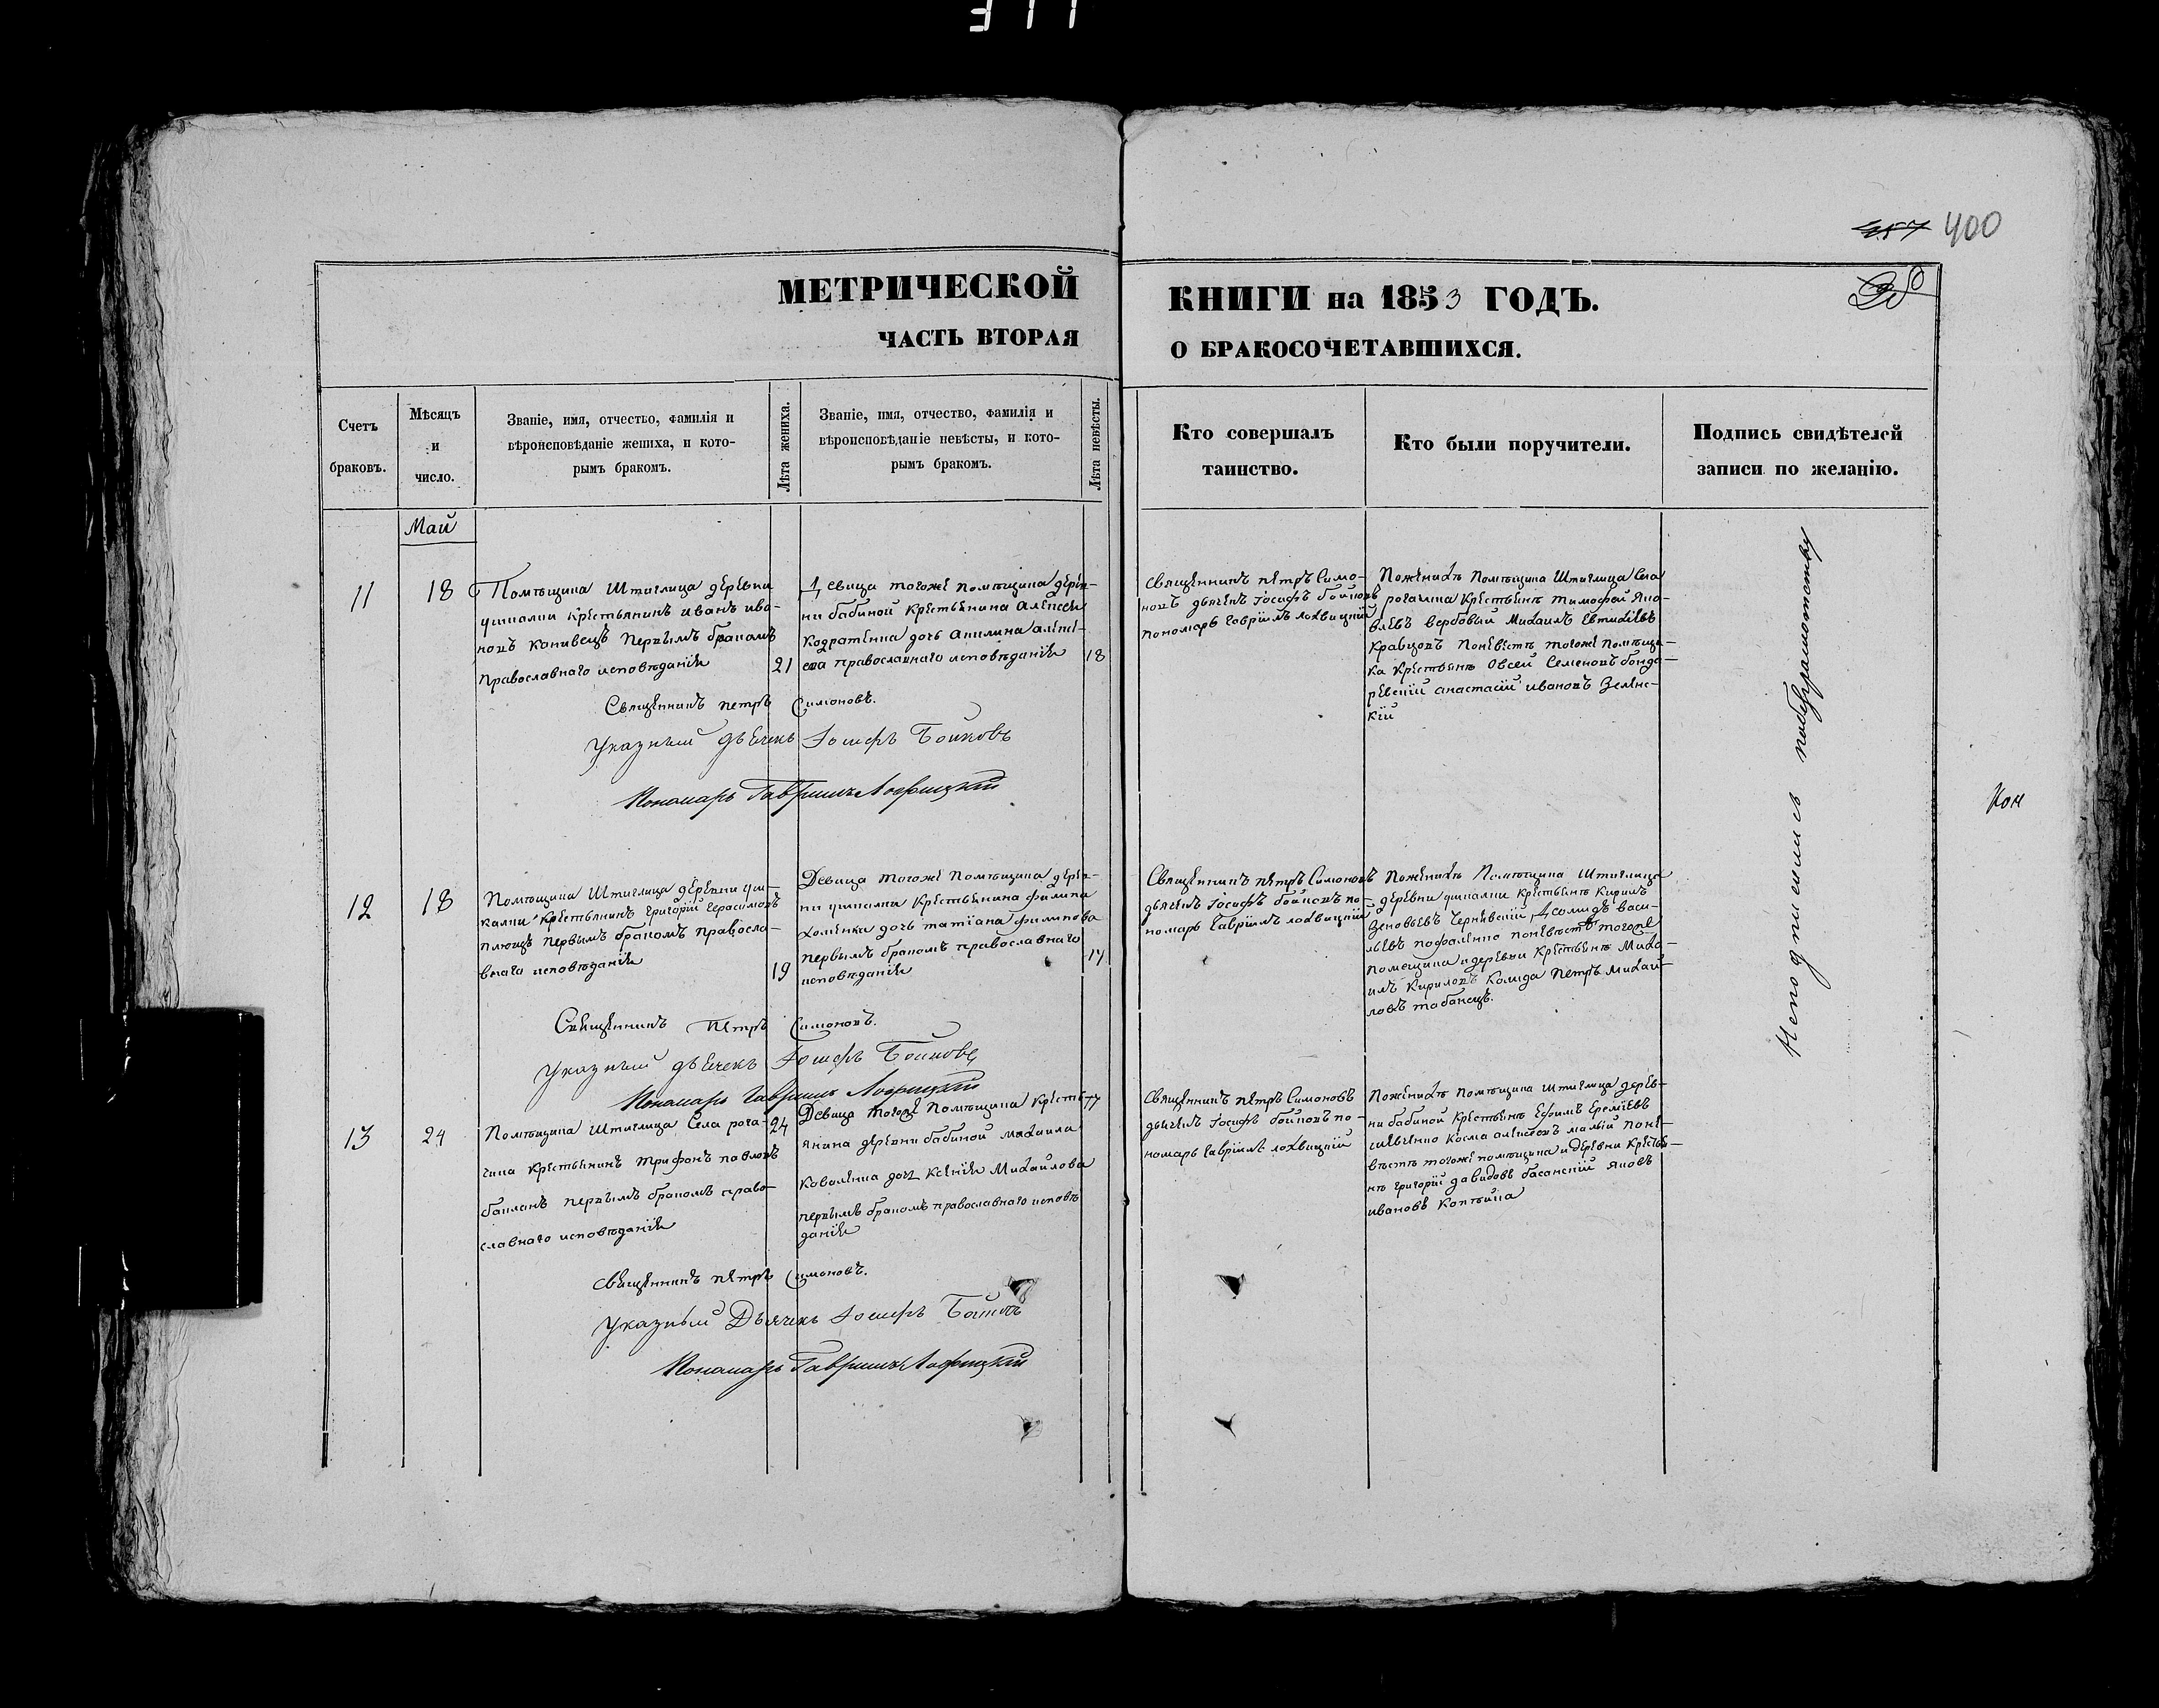 400
МЕТРИЧЕСКОЙ
ЧАСТЬ ВТОРАЯ
КНИГИ на 1853 ГОДЪ.
О БРАКОСОЧЕТАВШИХСЯ.
Счетъ браковъ.
Мѣсяцъ и число.
Званіе, имя, отчество, фамилія и
вѣроисповѣданіе жениха, и кото-
рымъ бракомъ.
Лѣта жениха.
Званіе, имя, отчество, фамилія и
вѣроисповѣданіе невѣсты, и кото-
рымъ бракомъ.
Лѣта невѣсты.
Кто совершалъ
таинство.
Кто были поручители.
Подпись свидѣтелей
записи по желанію.
Май
11
18
Помѣщика Штиглица деревни
крестьянинъ иванъ ива-
новъ канивецъ первымъ бракомъ
православнаго исповѣданія
21
Девица тогоже помѣщика дерев-
ни бабиной крестьянина алексея
кодратенка дочь акилина алексе-
ева православнаго исповѣданія
18
Священникъ петръ Симо-
новъ дьячекъ Іосифъ бойковъ
пономарь гавріилъ лохвицкій
Поженихѣ помѣщика Штиглица села
рогачика крестьянѣ тимофей яко-
влевъ вербовый михаилъ евтихіевъ
кравцовъ поневестѣ тогоже помѣщи-
ка крестьянѣ Овсей Семеновъ бонда-
ревскій анастасій ивановъ Зелѣнс-
кій
Священникъ петръ Симоновъ.
Указный дьячекъ Іосифъ Бойковъ
Пономарь Гавриилъ Лофицкий
12
18
Помѣщика Штиглица деревни
крестьянинъ григорій герасимовъ
плющъ первымъ бракомъ правосла-
внаго исповѣданія
19
Девица тогоже помѣщика дерев-
ни крестьянина филипа
хоменка дочь татіана филипова
первымъ бракомъ православнаго
исповѣданія
17
Священникъ петръ Симоновъ
дьячекъ Іосифъ бойковъ по-
номарь гавріилъ лохвицкій
Поженихѣ Помѣщика Штиглица
деревни крестьянѣ кирилъ
Зеновьевъ Чернявскій васи-
льевъ поневѣстѣ тогоже
помещика и деревни крестьянѣ миха-
илъ кириловъ петръ михаи-
ловъ табанецъ.
Священникъ Петръ Симоновъ.
Указный дьячекъ Іосифъ Бойковъ
Пономарь Гавриилъ Лофицкий
13
24
Помѣщика Штиглица Села рога-
чика крестьянинъ трифонъ павловъ
бакланъ первымъ бракомъ право-
славнаго исповѣданія
24
Девица тогоже помѣщика крѣсть-
янина деревни бабиной михаила
коваленка дочь ксенія михаилова
первымъ бракомъ православнаго исповѣ
данія
17
Священникъ петръ Симоновъ
дьячекъ Іосифъ бойковъ по-
номарь гавріилъ лохвицкій
Поженихѣ помѣщика штиглица дерев-
ни бабиной крестьянѣ Ефимъ Еремѣевъ
косма алексеевъ малый поне-
вѣстѣ тогоже помѣщика и деревни крестья-
нѣ григорій давидовъ басанскій яковъ
ивановъ
Священникъ петръ Симоновъ.
Указный Дьячекъ Іосифъ Бойковъ
Пономарь Гавриилъ Лофицкий
Неподписались побезграмотству
Кон